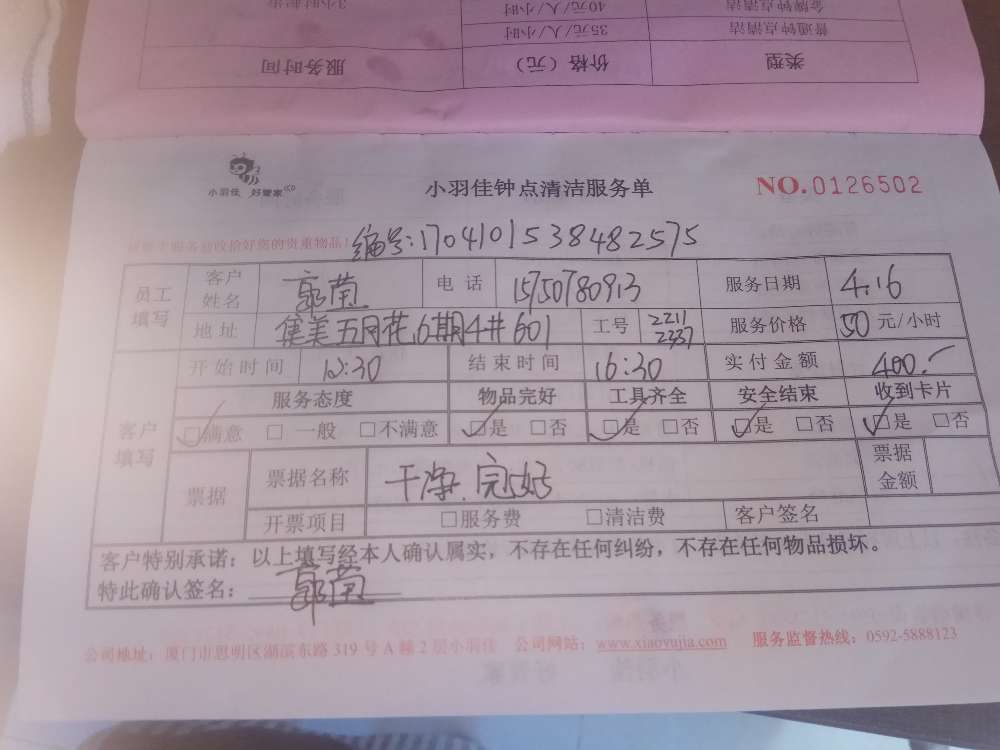 3小时起步 40元/人/小时 金牌钟点清洁
35元/人/小时 普通钟点清洁
服务时间 价格（元） 类型
小羽佳 好管家
小羽佳钟点清洁服务单
NO.0126502
编号:1704101538482575
员工填写 客户姓名 郭菊 电话 15750780913 服务日期 4.16
地址 集美五月花,6期4井601 工号 2211 2337 服务价格 50元/小时
客户填写 开始时间 12:30 结束时间 16:30 实付金额 400.-
服务态度 物品完好 工具齐全 安全结束 收到卡片
☑满意 □一般 □不满意 ☑是 □否 ☑是 □否 ☑是 □否 ☑是 □否
票据 票据名称 干净.完好 票据金额
开票项目 □服务费 □清洁费 客户签名
客户特别承诺：以上填写经本人确认属实，不存在任何纠纷，不存在任何物品损坏。
特此确认签名：郭菊
公司地址：厦门市思明区湖滨东路 319 号 A 幢 2 层小羽佳 公司网站：www.xiaoyujia.com 服务监督热线：0592-5888123